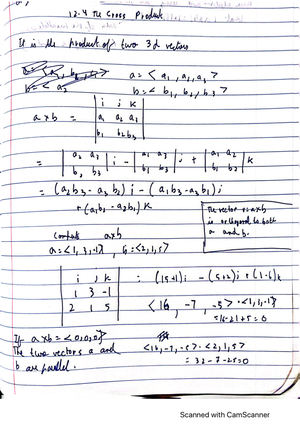 12.4 The Cross Product
It is the product of two 3d vectors
a = < a₁, a₂, a₃ >
b = < b₁, b₂, b₃ >
a x b = | i j k |
| a₁ a₂ a₃ |
| b₁ b₂ b₃ |
= | a₂ a₃ | i - | a₁ a₃ | j + | a₁ a₂ | k
| b₂ b₃ | | b₁ b₃ | | b₁ b₂ |
= (a₂b₃ - a₃b₂) i - (a₁b₃ - a₃b₁) j
+ (a₁b₂ - a₂b₁) k
The vector a x b
is orthogonal to both
a and b.
Compute a x b
a = <1, 3, -1>, b = <2, 1, 5>
| i j k | = (15+1)i - (5+2)j + (1-6)k
| 1 3 -1 |
| 2 1 5 |
<16, -7, -5> · <1, 3, -1>
= 16 - 21 + 5 = 0
If a x b = <0,0,0>
The two vectors a and
b are parallel.
<16, -7, -5> · <2, 1, 5>
= 32 - 7 - 25 = 0
Scanned with CamScanner